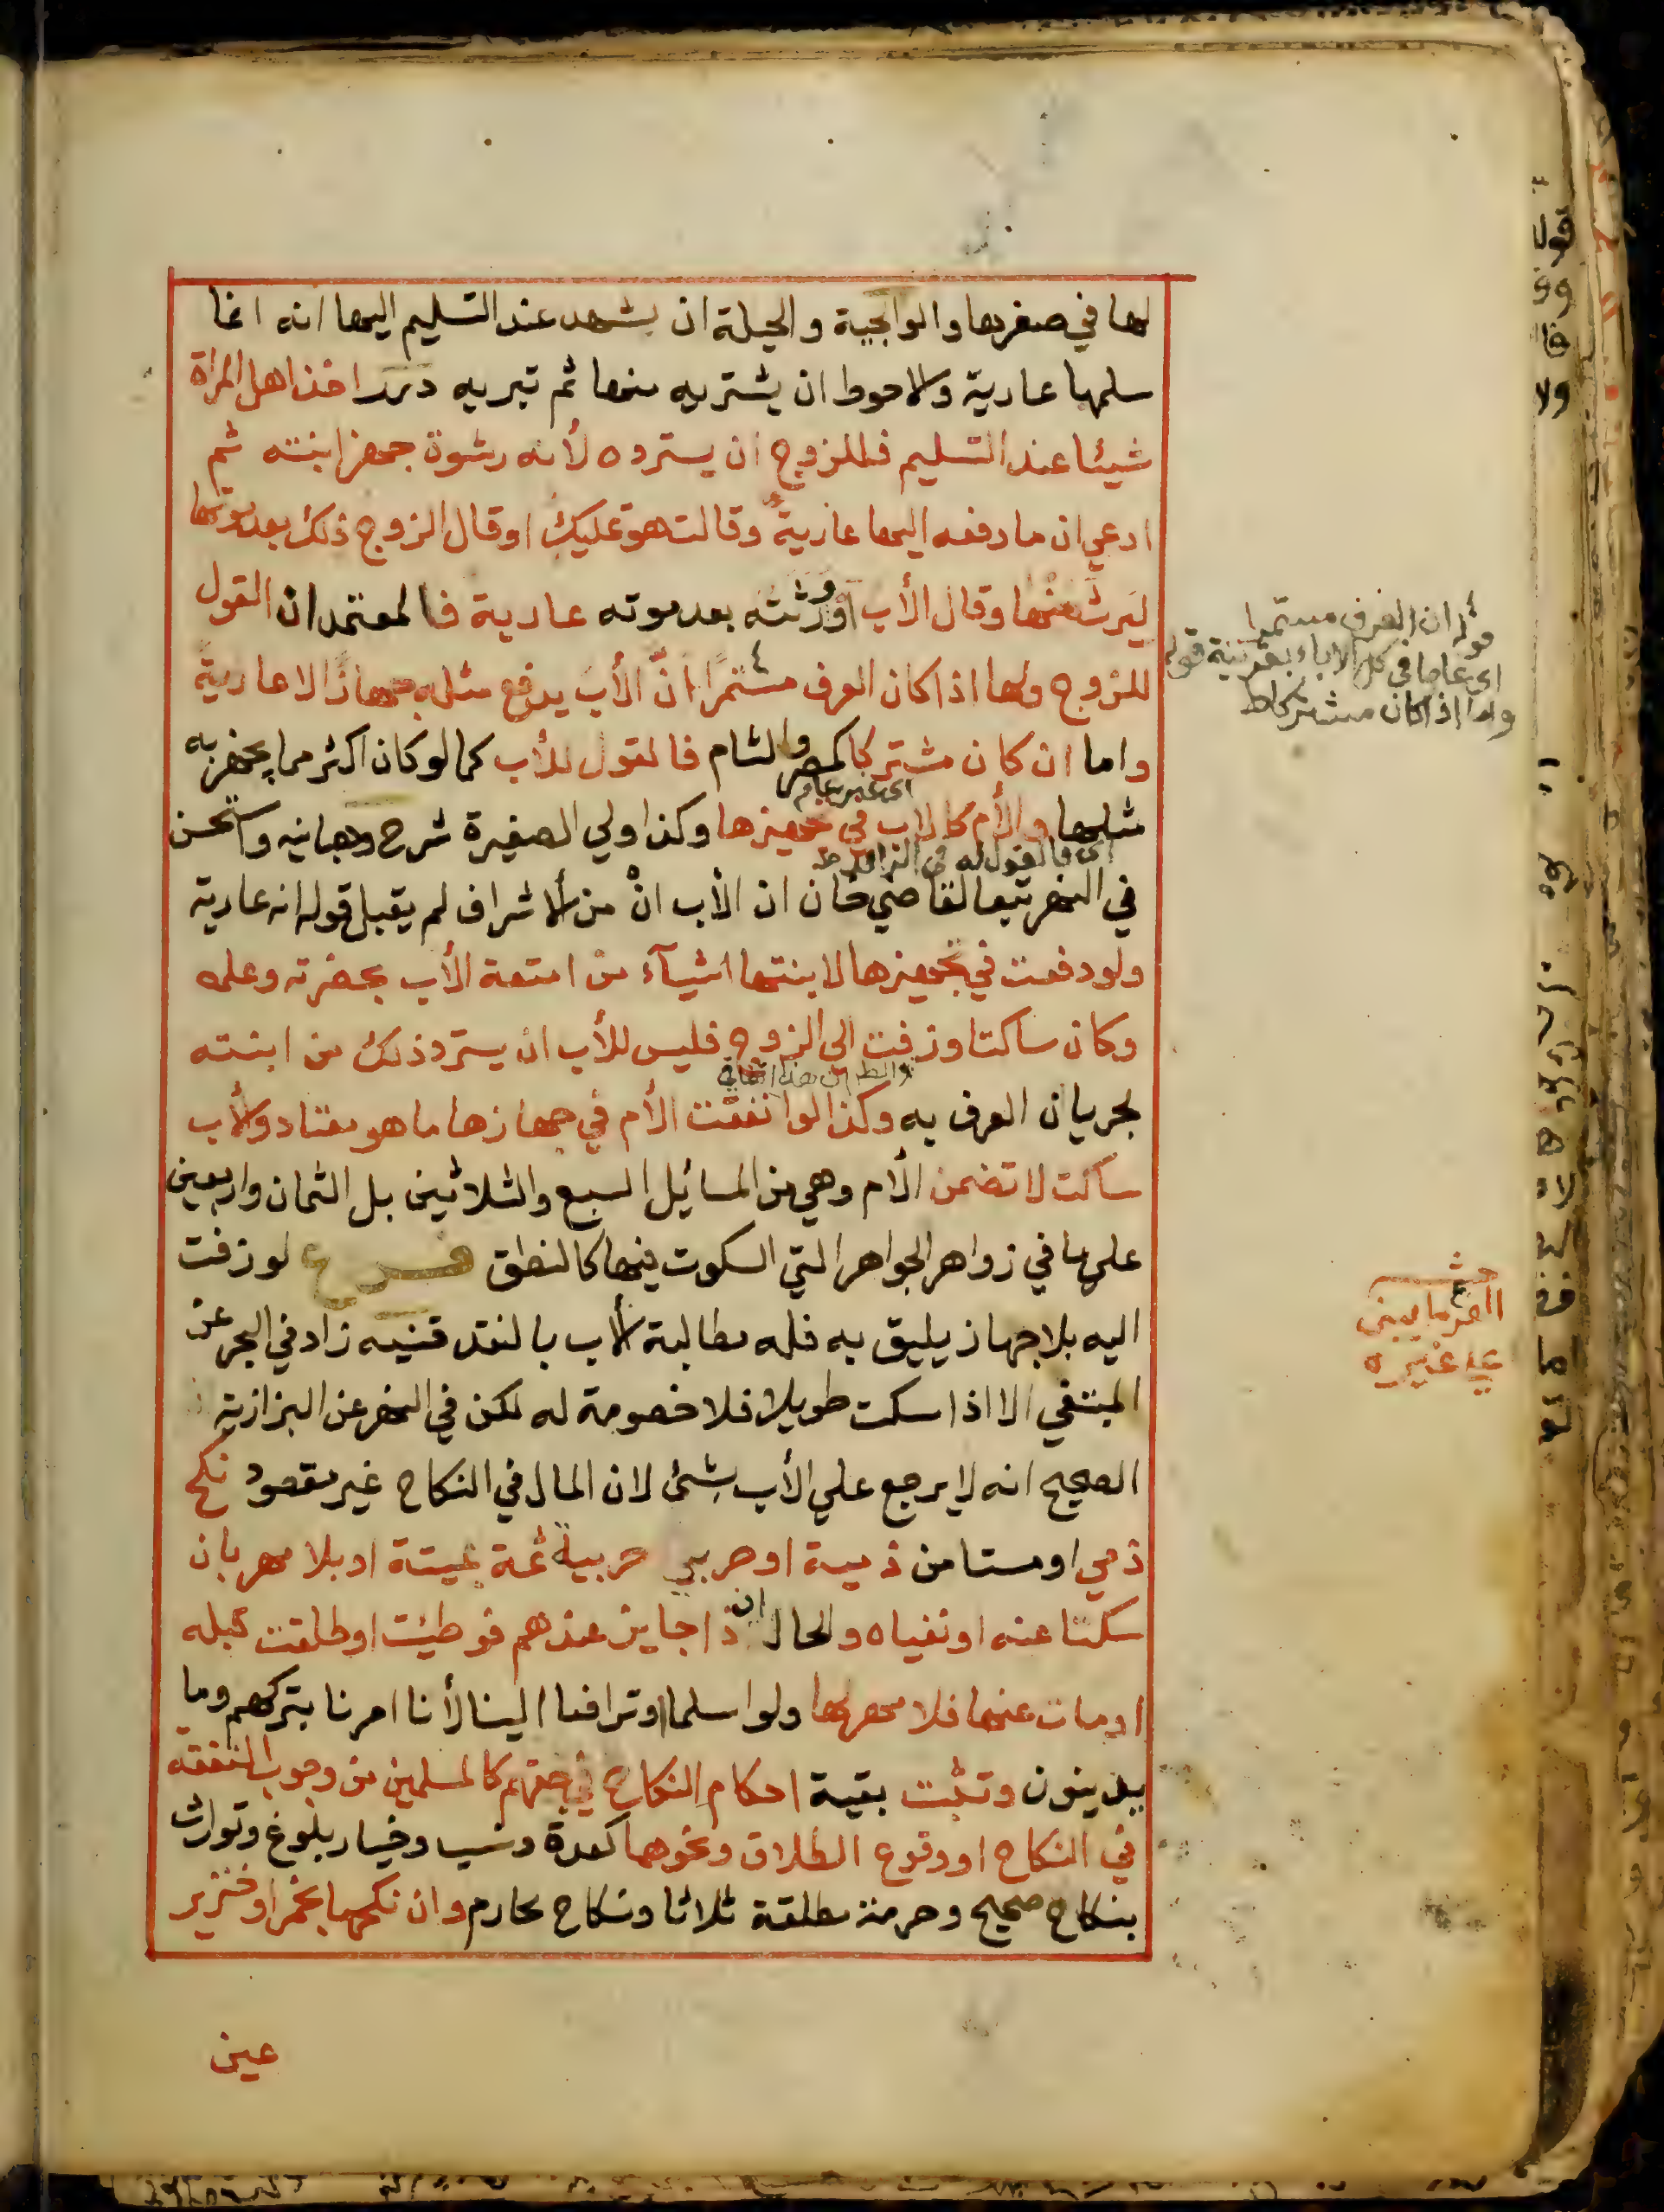 لها في صغرها والوالجية والحيلة ان يشهد عند التسليم اليها انه انما
سلمها عارية والاحوط ان يشتريه منها ثم تبريه درر اخذ اهل المراة
شيئا عند التسليم فللزوج ان يسترده لأنه رشوة جهز ابنته ثم
ادعي ان ما دفعه اليها عارية وقالت هو تمليك او قال الزوج ذلك بعد موتها
ليَرث منها وقال الأب أو ورثته بعد موته عارية فالمعتمد ان القول
للزوج ولها اذا كان العرف مستمرًا انّ الأبَ يدفع مثله جهازًا لا عاريةً
واما ان كان مشتركا كمصر والشام فالقول للأب كما لو كان اكثر مما يجهز به
اى غير عام
مثلها والأم كالاب في تجهيزها وكذا ولي الصغيرة شرح وهبانيه واستحسن
اى فالقول له في الزائد
في النهر تبعا لقاضي خان ان الأب انْ من الاشراف لم يقبل قوله انه عارية
ولو دفعت في تجهيزها لابنتها اشيآء من امتعة الأب بحضرته وعلمه
وكان ساكتا وزفت الى الزوج فليس للأب ان يسترد ذلك من ابنته
لجريان العرف به وكذا لو انفقت الأم في جهازها ما هو معتاد والأب
ساكت لا تضمن الأم وهي من المسائل السبع والثلاثين بل الثمان واربعين
على ما في زواهر الجواهر التي السكوت فيها كالنطق فرع لو زفت
اليه بلا جهاز يليق به فله مطالبة الأب بالنقد قنيه زاد في البحر عن
المبتغي الا اذا سكت طويلا فلا خصومة له لكن في النهر عن البزازية
الصحيح انه لا يرجع علي الأب بشئ لان المال في النكاح غير مقصود نكح
ذمي او مستامن ذمية او حربي حربية ثمة بميتة او بلا مهر بان
سكتا عنه او نفياه والحال ان ذا جايز عندهم فوطئت او طلقت قبله
او مات عنها فلا مهر لها ولو اسلما او ترافعا الينا لأنا امرنا بتركهم وما
يدينون وتثبت بقية احكام النكاح في حقهم كالمسلمين من وجوب النفقه
في النكاح او وقوع الطلاق ونحوهما كعدة ونسب وخيار بلوغ وتوارث
بنكاح صحيح وحرمة مطلقة ثلاثا ونكاح محارم وان نكحها بخمر او خنزير
عين
قوله ان العرف مستمرا
اى عاما في كل الاباء بقرينة قوله
واما اذا كان مشتركا ط